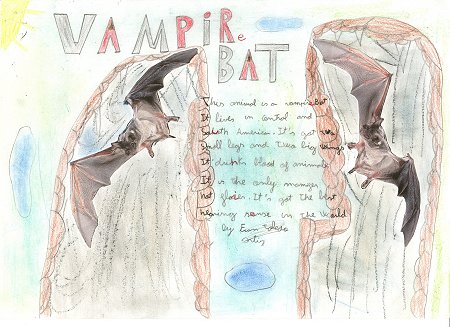 VAMPIRe
BAT
This animal is a vampire bat
It lives in Central and
South American. It's got
small legs and two big wings
It drinks blood of animals
It is the only
It's got the best
hearing sense in the World
by